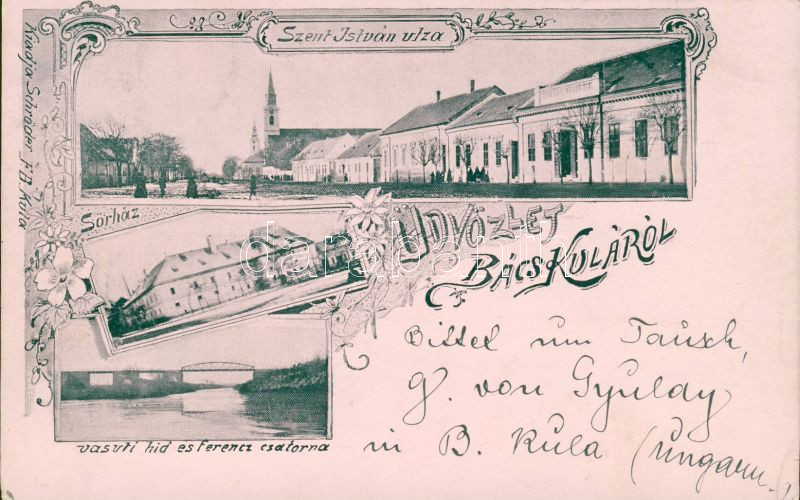 Szent István utza
Kiadja Schräder F.B. Kula
Sörház
ÜDVÖZLET
BÁCS KULÁRÓL
vasuti hid es Ferencz csatorna
Bittet um Tausch,
G. von Gyulay
in B. Kula (Ungarn.)